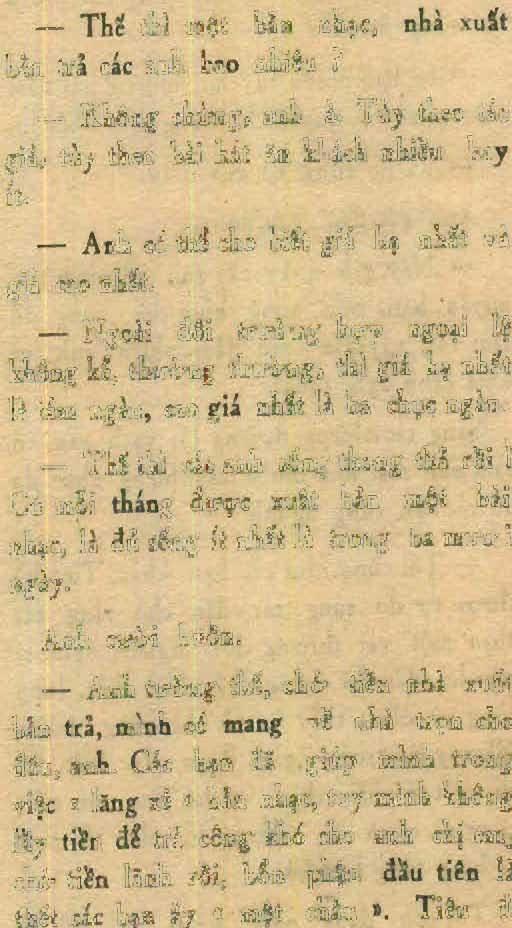 — Thế thì một bản nhạc, nhà xuất
bản trả các anh bao nhiêu ?
— Không chừng, anh ạ. Tùy theo tác
giả, tùy theo bài hát ăn khách nhiều hay
ít.
— Anh có thể cho biết giá hạ nhất và
giá cao nhất.
— Ngoài đôi trường hợp ngoại lệ
không kể, thường thường, thì giá hạ nhất
là tám ngàn, cao giá nhất là ba chục ngàn.
— Thế thì các anh sống thong thả rồi !
Cứ mỗi tháng được xuất bản một bài
nhạc, là đủ sống ít nhất là trong ba mươi
ngày.
Anh cười buồn.
— Anh tưởng thế, chớ tiền nhà xuất
bản trả, mình có mang về nhà trọn cho
đâu, anh. Các bạn đã giúp mình trong
việc « lăng xê » bản nhạc, tuy mình không
lấy tiền để trả công khó cho anh chị em,
tiền lãnh rồi, bổn phận đầu tiên là
thết các bạn ấy « một chầu ». Tiêu